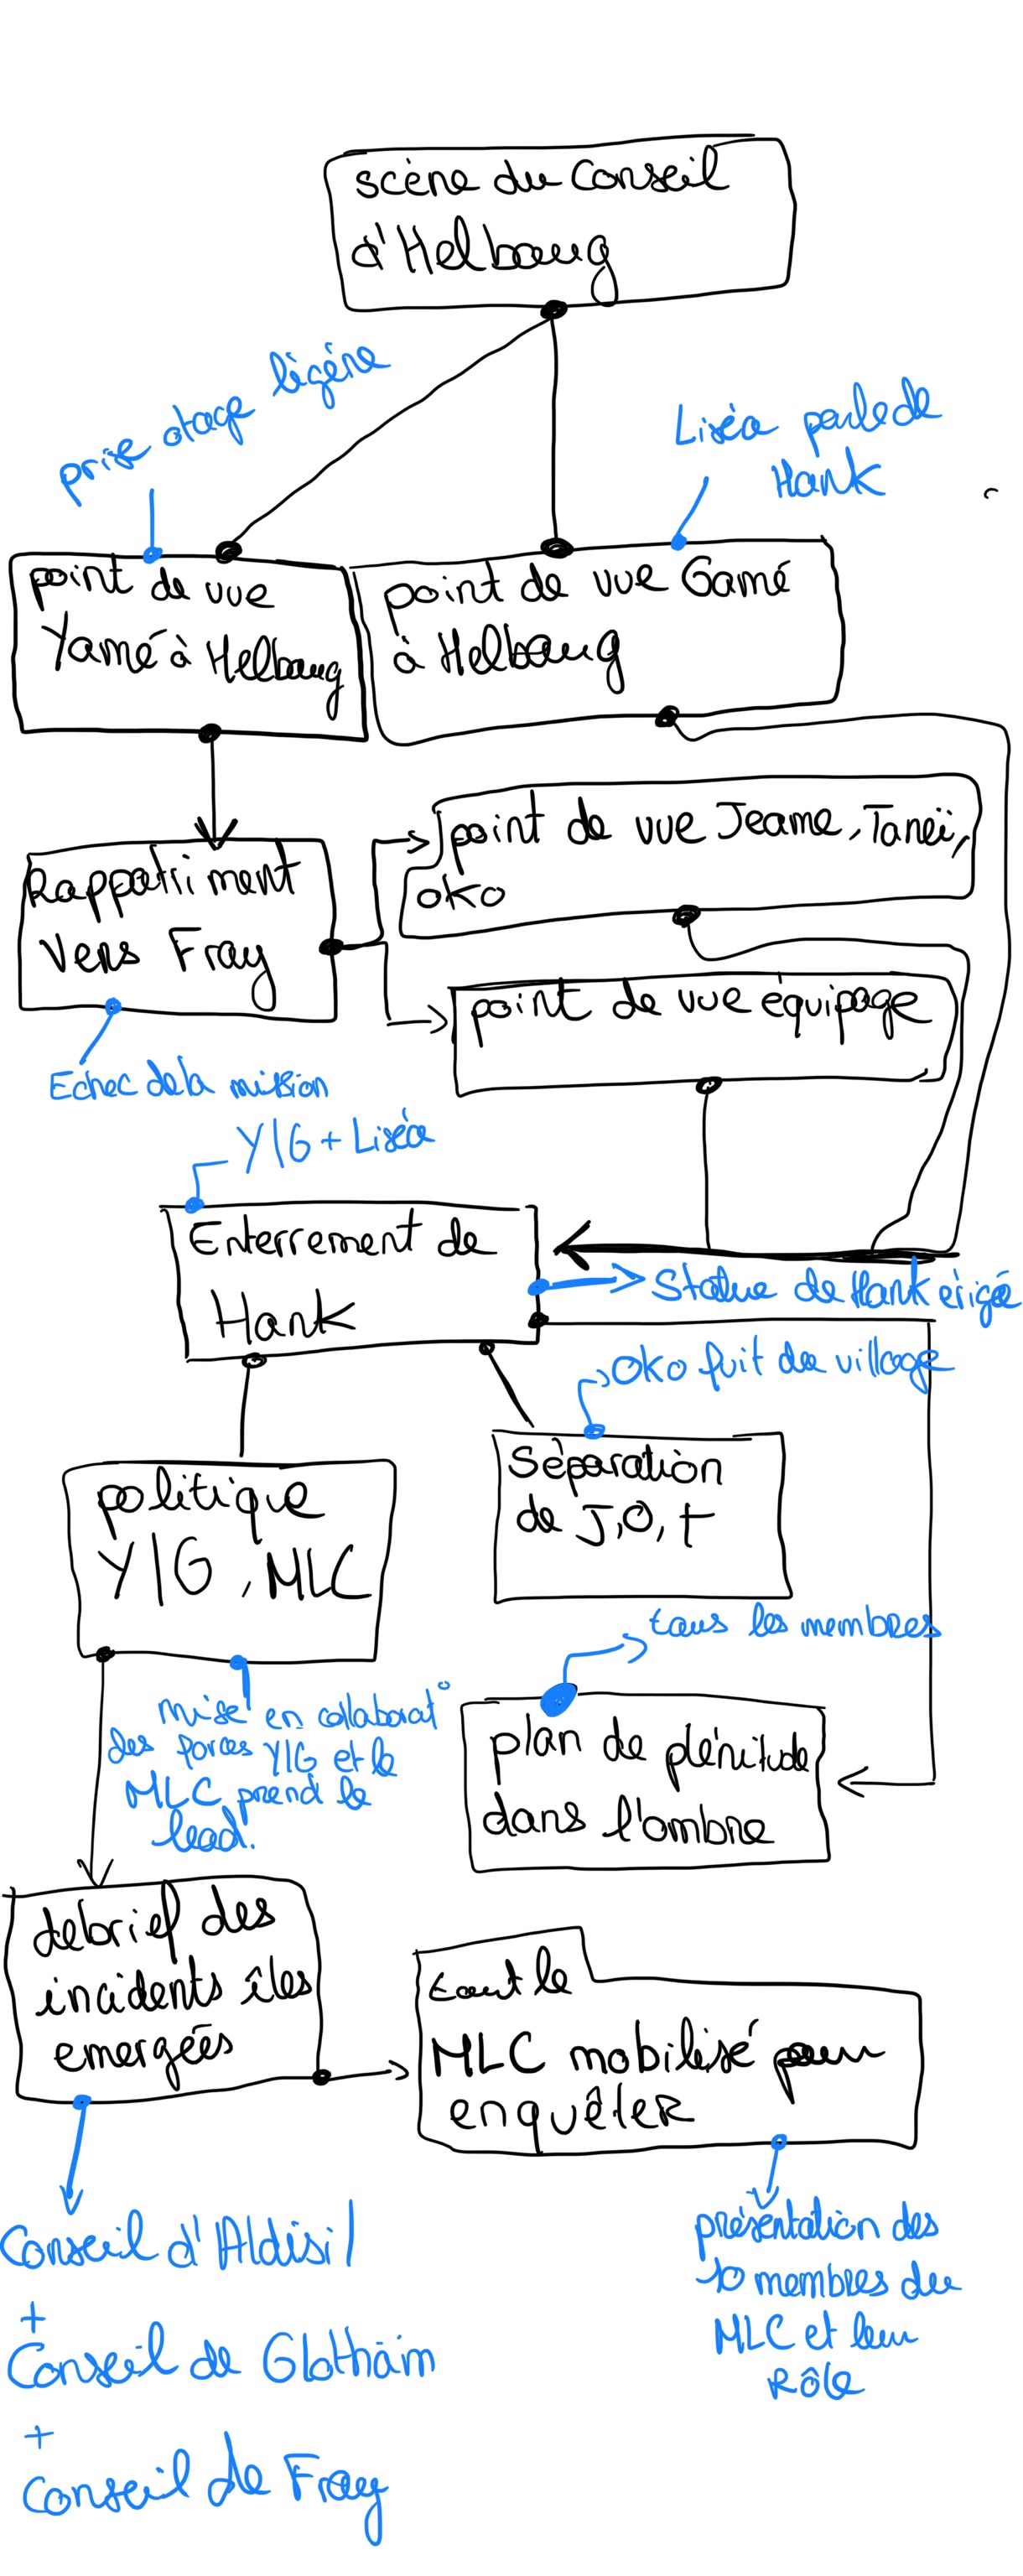 scène du Conseil
d'Helbaug
prise otage légère
Liséa parle de
Hank
point de vue
Yamé à Helbaug
point de vue Gamé
à Helbaug
point de vue Jeame, Taneï,
OKO
Rappatriment
vers Fray
point de vue équipage
Echec de la mission
Y/G + Liséa
Enterrement de
Hank
Statue de Hank érigée
Oko fuit du village
Séparation
de J, O, t
politique
Y/G, MLC
tous les membres
mise en collaborat°
des forces Y/G et le
MLC prend le
lead.
plan de plénitude
dans l'ombre
debrief des
incidents îles
emergées
tout le
MLC mobilisé pour
enquêter
Conseil d'Aldisil
+
Conseil de Glothaim
+
Conseil de Fray
présentation des
10 membres du
MLC et leur
Rôle